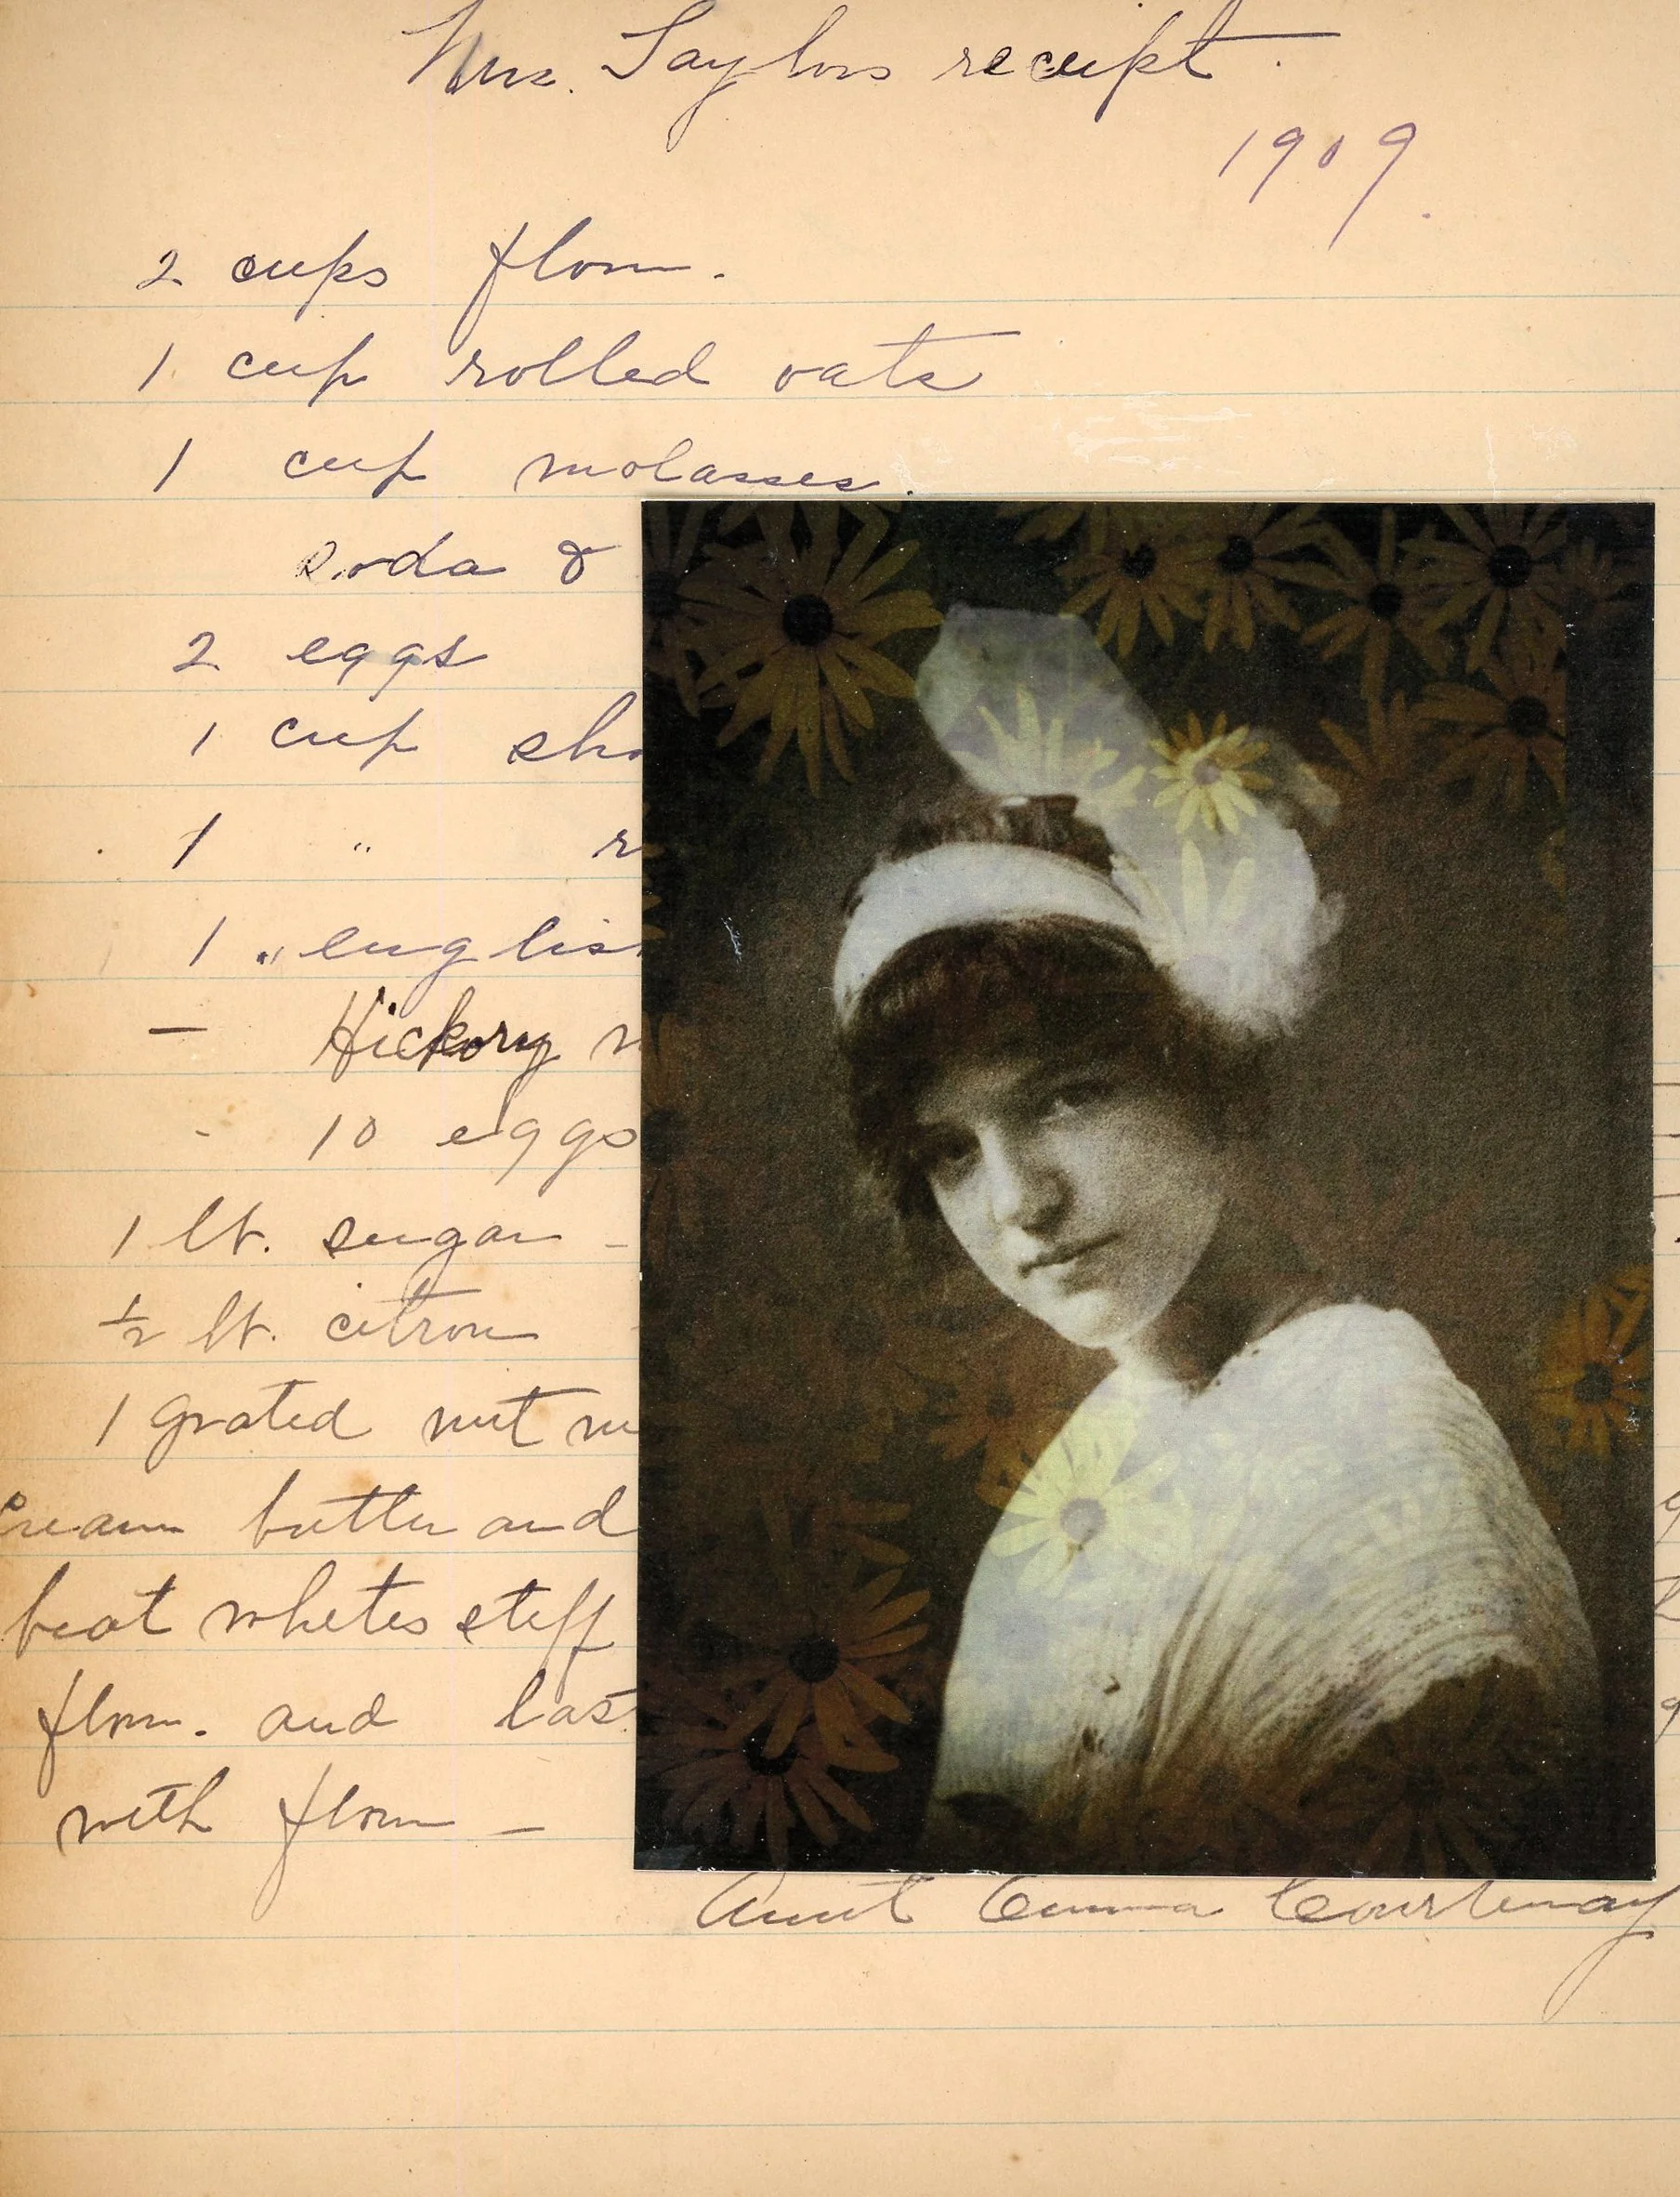 Mrs. Taylors receipt.
1909.
2 cups flour.
1 cup rolled oats
1 cup molasses.
Soda &
2 eggs
1 cup sho
1 " r
1 " englis
- Hickory n
- 10 eggs
1 lb. sugar -
½ lb. citron
1 grated nut m
Cream butter and
beat whites stiff
flour. and last
with flour -
Aunt Emma Courtenay